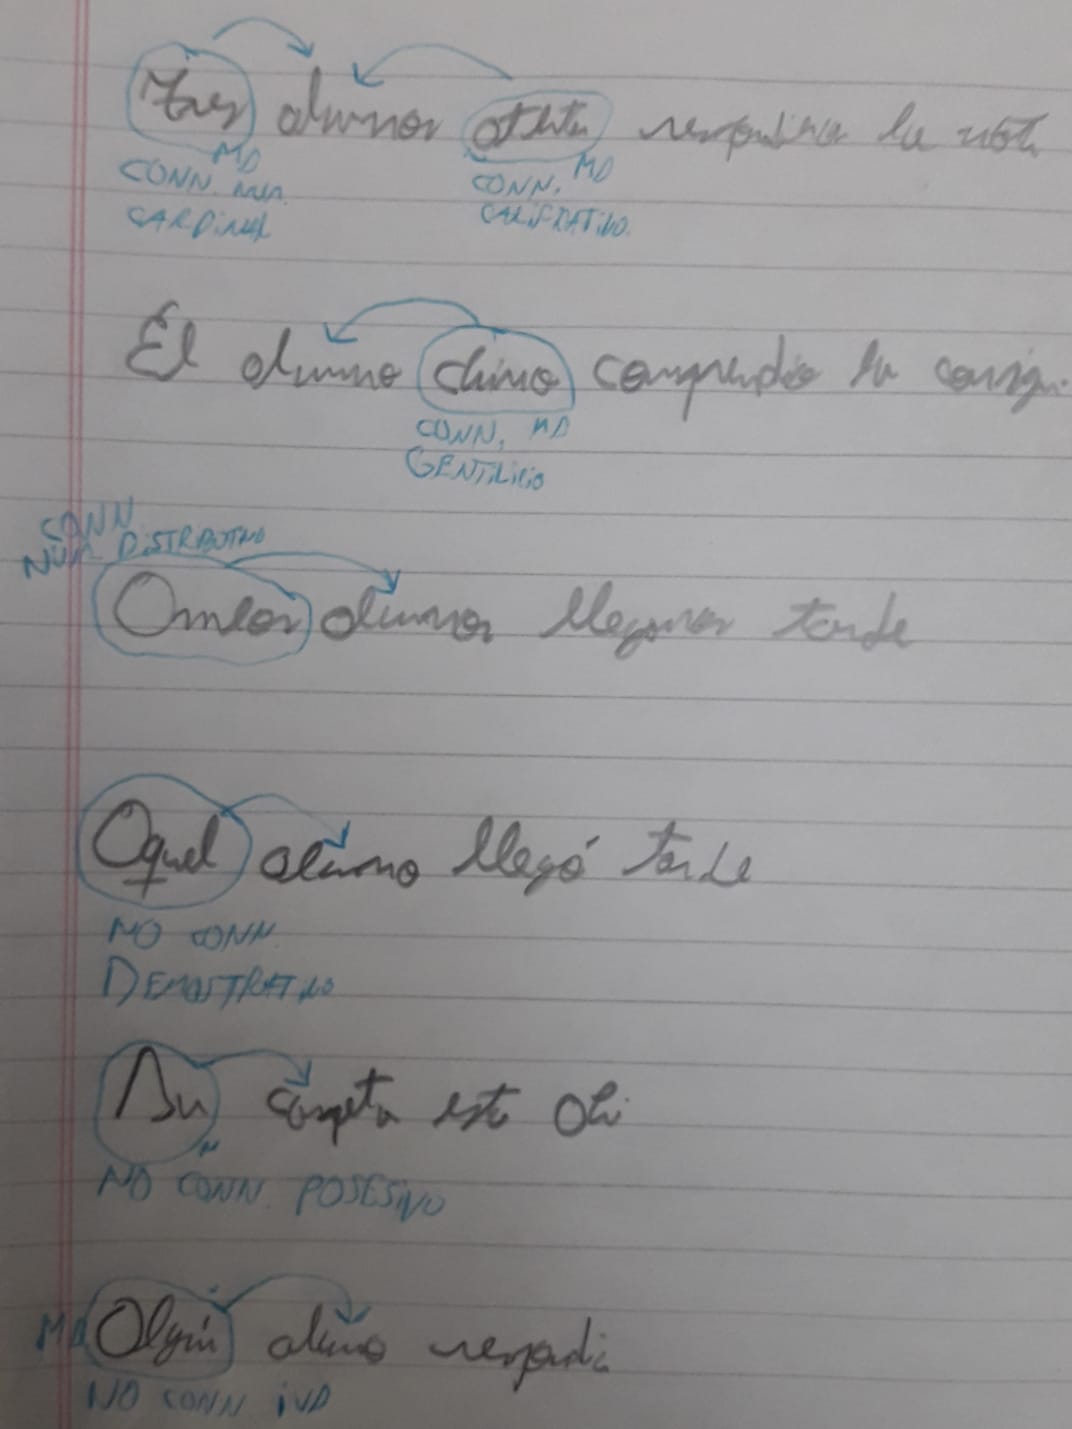 Tres alumnos respondieron la nota
MD MD
CONN. num. CONN.
CARDINAL CALIFICATIVO.
El alumno chino comprendió la consigna
CONN. MD
GENTILICIO
CONN
NUM. DISTRIBUTIVO
Ambos alumnos llegaron tarde
Aquel alumno llegó tarde
NO CONN.
DEMOSTRATIVO
Su carpeta está ahi
NO CONN. POSESIVO
MD Algún alumno respondió
NO CONN IND